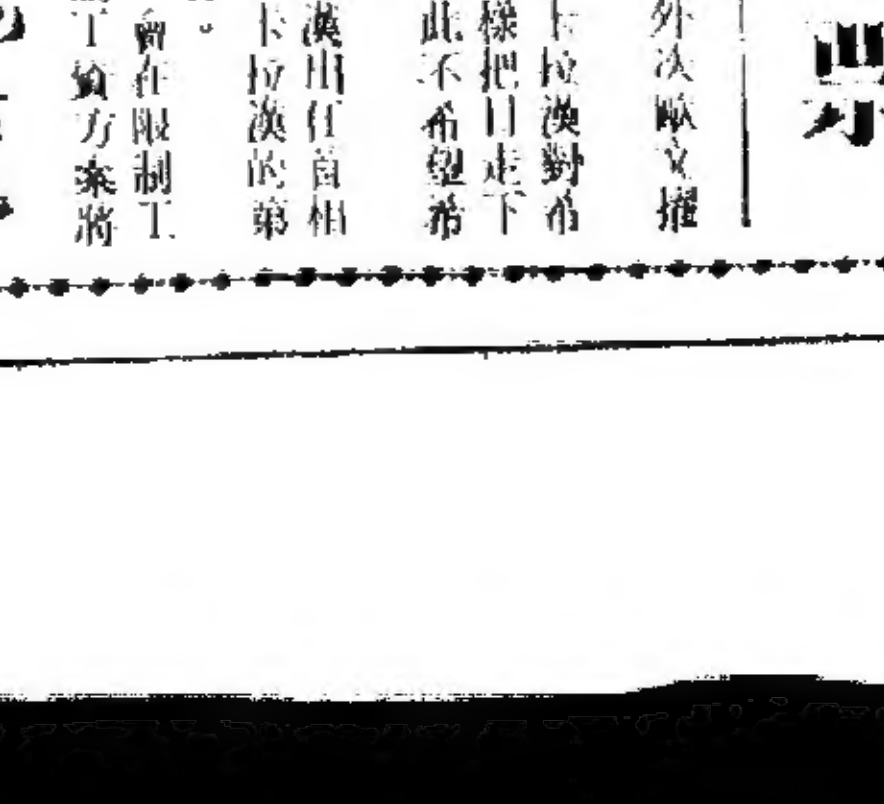 外次歐文擢
卡拉漢對希
樣把日走下
此不希望希
漢出任首相
卡拉漢的第
。
會在限制工
工資方案將